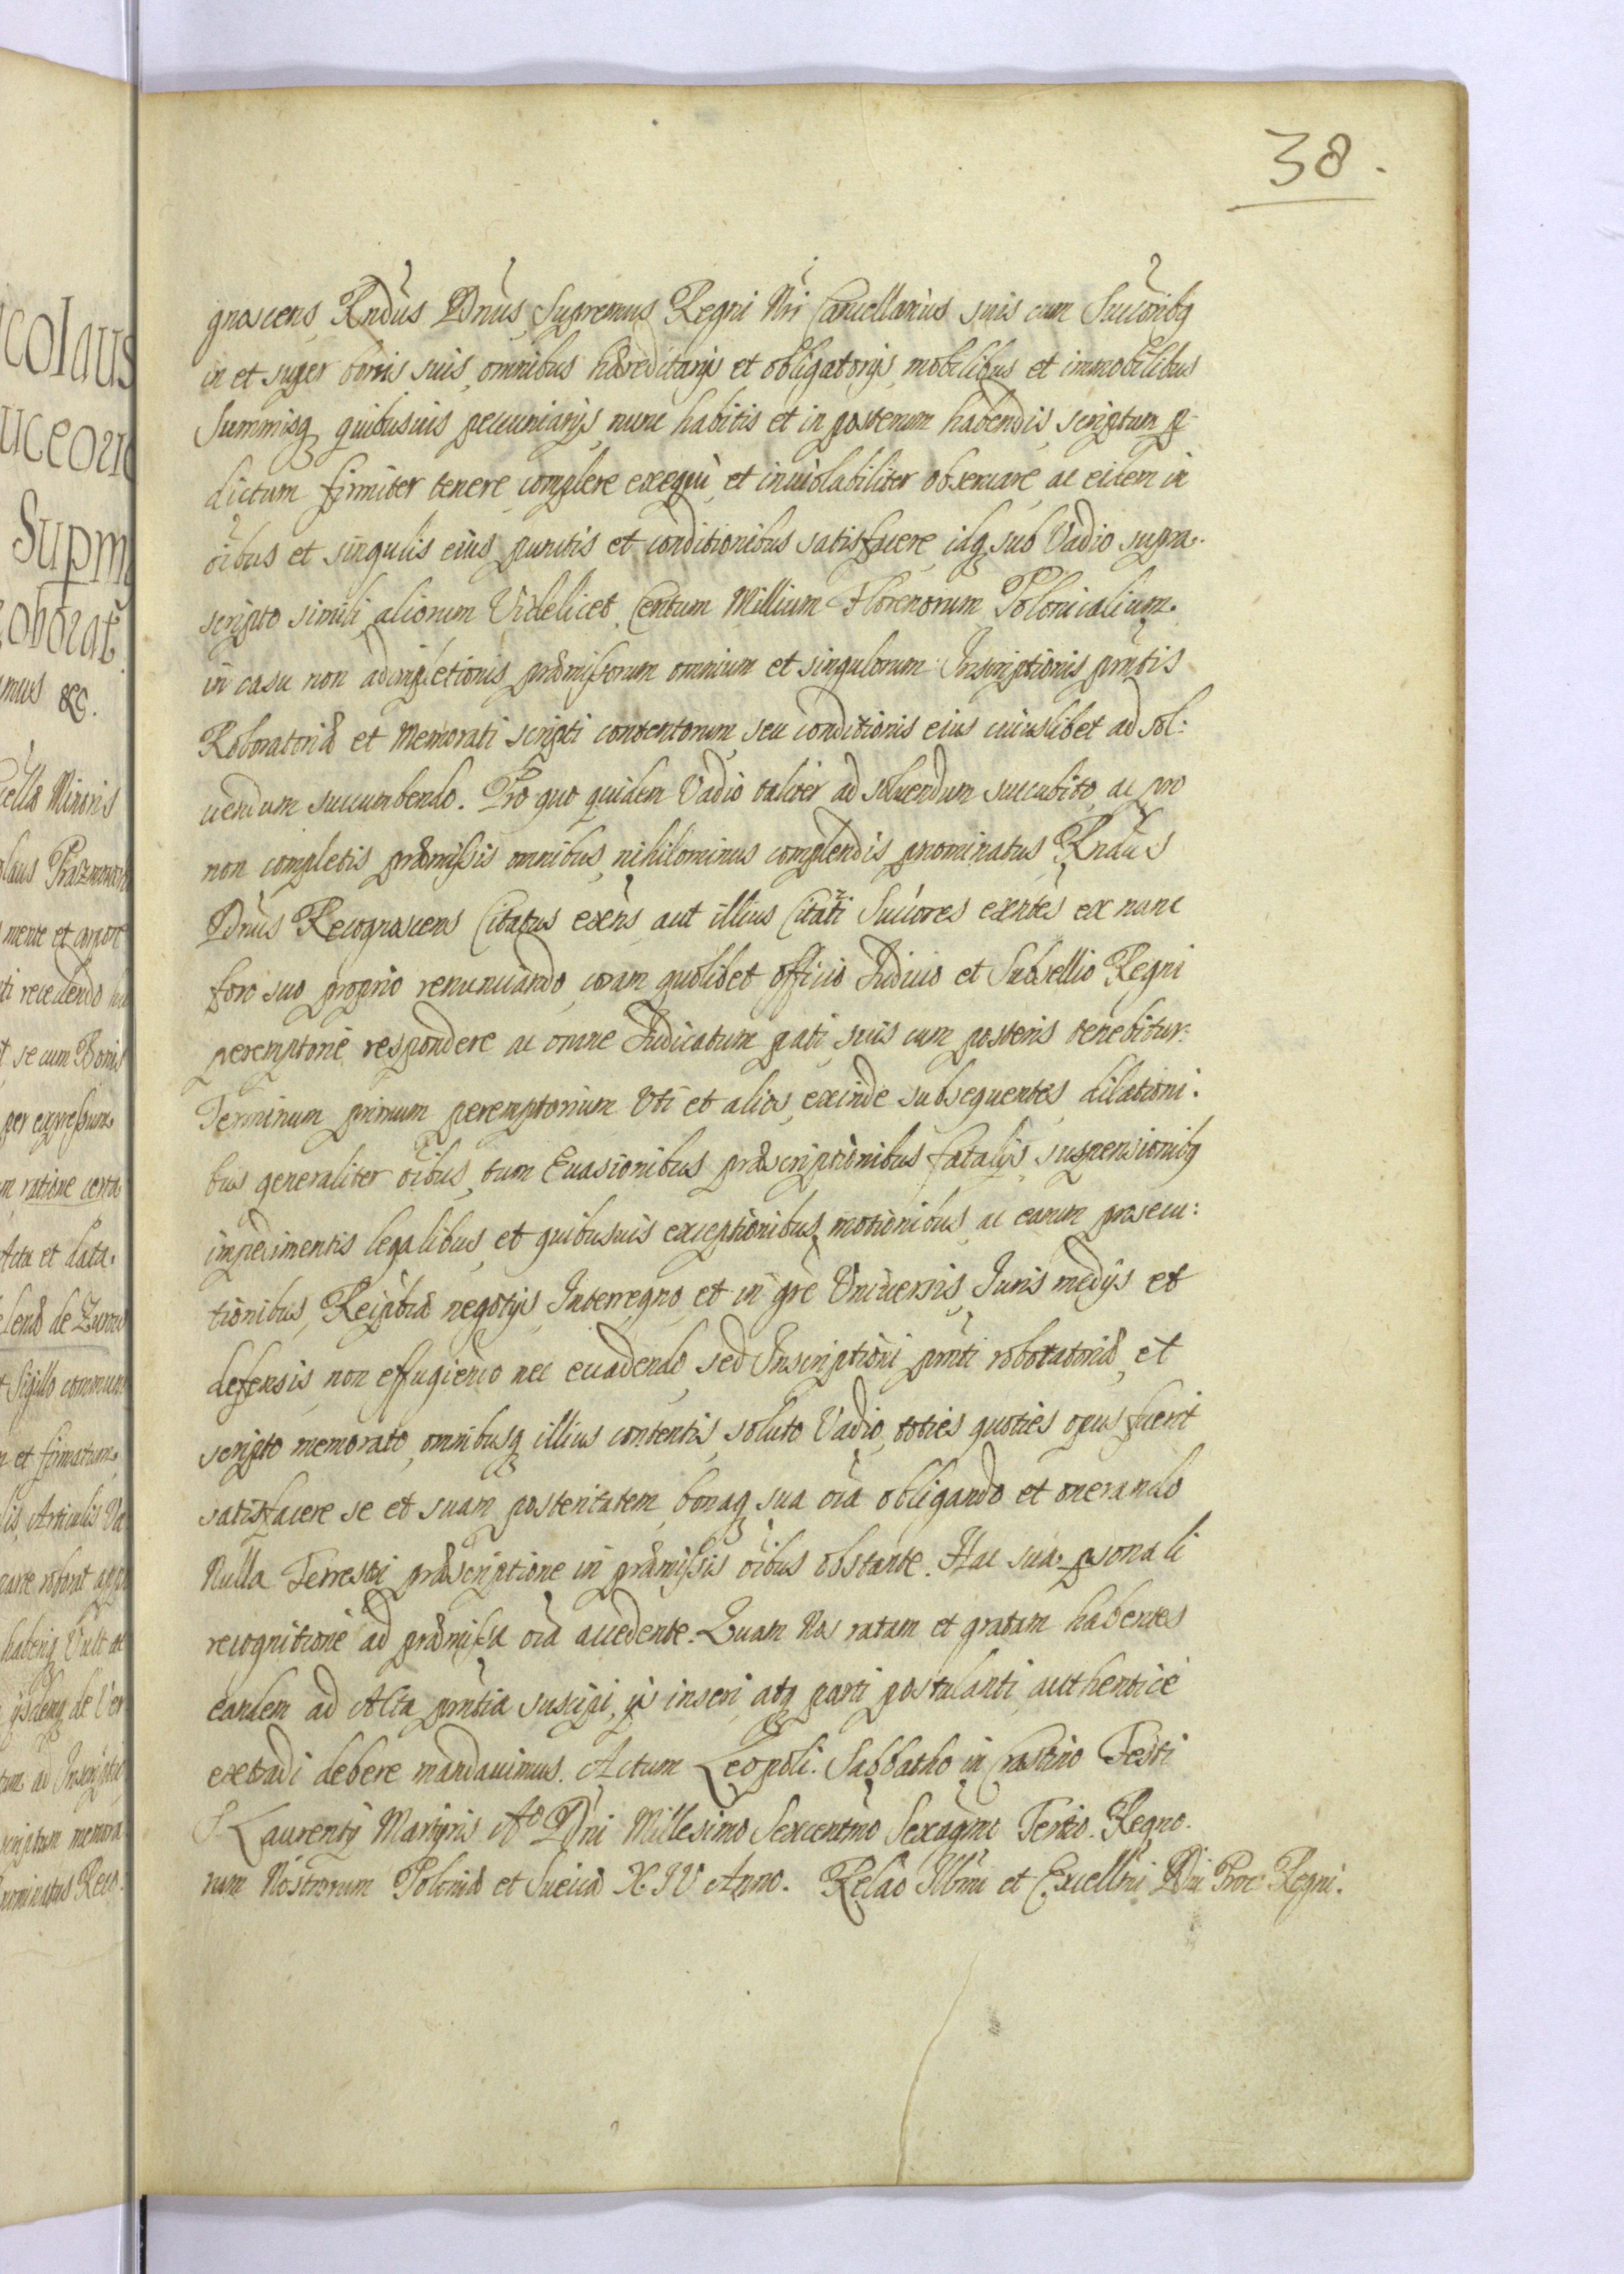 38.
gnoscens Rndus Dnus Supremus Regni Nri Cancellarius suis cum Succoribq
in et super bonis suis omnibus hæreditarijs et obligatorijs mobilibus et immobilibus
Summisq quibusuis pecuniarijs nunc habitis et in posterum habendis scriptum p-
dictum firmiter tenere complere exequi et inuiolabiliter obseruare ac eidem in
oibus et singulis eius punctis et conditionibus satisfacere idq sub Vadio supra-
scripto simili aliorum Videlicet Centum Millium Florenorum Polonicalium.
in casu non adimpletionis præmissorum omnium et singulorum Inscriptionis pntis
Roboratoriæ et Memorati scripti contentorum seu conditionis eius cuiuslibet ad sol:
uendum succumbendo. Pro quo quidem Vadio taliter ad soluendum succubito ac pro
non completis præmissis omnibus nihilominus complendis pnominatus Rndus
Dnus Recognoscens Citatus exens aut illius Citati Succores exntes ex nunc
foro suo proprio renunciando coram quolibet officio Judicio et Subsellio Regni
peremptorie respondere ac omne Judicatum pati suis cum posteris tenebitur.
Terminum primum peremptorium Uti et alios exinde subsequentes dilationi.
bus generaliter oibus, tum Euasionibus præscriptionibus fatalijs suspensionibq
impedimentis legalibus et quibusuis exceptionibus motionibus ac earum prosecu:
tionibus, Reipbcæ negotijs Interregno et in gre Universis Juris medijs et
defensis non effugiendo nec euadendo sed Inscriptioni pnti roboratoriæ, et
scripto memorato, omnibusq illius contentis soluto Vadio toties quoties opus fuerit
satisfacere se et suam posteritatem bonaq sua oia obligando et onerando
Nulla Terrestri præscriptione in præmissis oibus obstante. Hac sua psonali
recognitione ad præmissa oia accedente. Quam Nos ratam et gratam habentes
eandem ad Acta pntia suscipi, ijs inseri atq parti postulanti authentice
extradi debere mandauimus. Actum Leopoli. Sabbatho in Crastino Festi
S Laurentij Martyris Ao Dni Millesimo Sexcentmo Sexagmo Tertio. Regno.
rum Nostrorum Poloniæ et Sueciæ XIV Anno. Relao Illmi et Excellmi Dni Proc Regni.